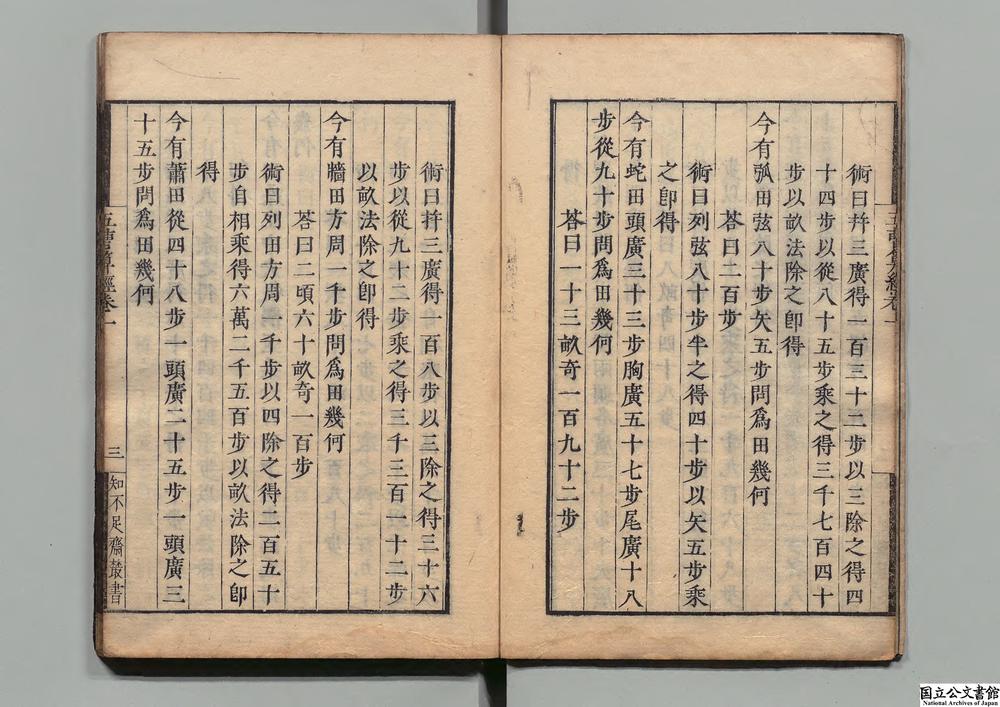 術曰并三廣得一百三十二步以三除之得四
十四步以從八十五步乘之得三千七百四十
步以畝法除之卽得
今有弧田弦八十步矢五步問爲田幾何
荅曰二百步
術曰列弦八十步半之得四十步以矢五步乘
之卽得
今有蛇田頭廣三十三步胸廣五十七步尾廣十八
步從九十步問爲田幾何
荅曰一十三畝奇一百九十二步
術曰并三廣得一百八步以三除之得三十六
步以從九十二步乘之得三千三百一十二步
以畝法除之卽得
今有牆田方周一千步問爲田幾何
荅曰二頃六十畝奇一百步
術曰列田方周一千步以四除之得二百五十
步自相乘得六萬二千五百步以畝法除之卽
得
今有蕭田從四十八步一頭廣二十五步一頭廣三
十五步問爲田幾何
五曹算經卷一
三
知不足齋叢書
国立公文書館
National Archives of Japan